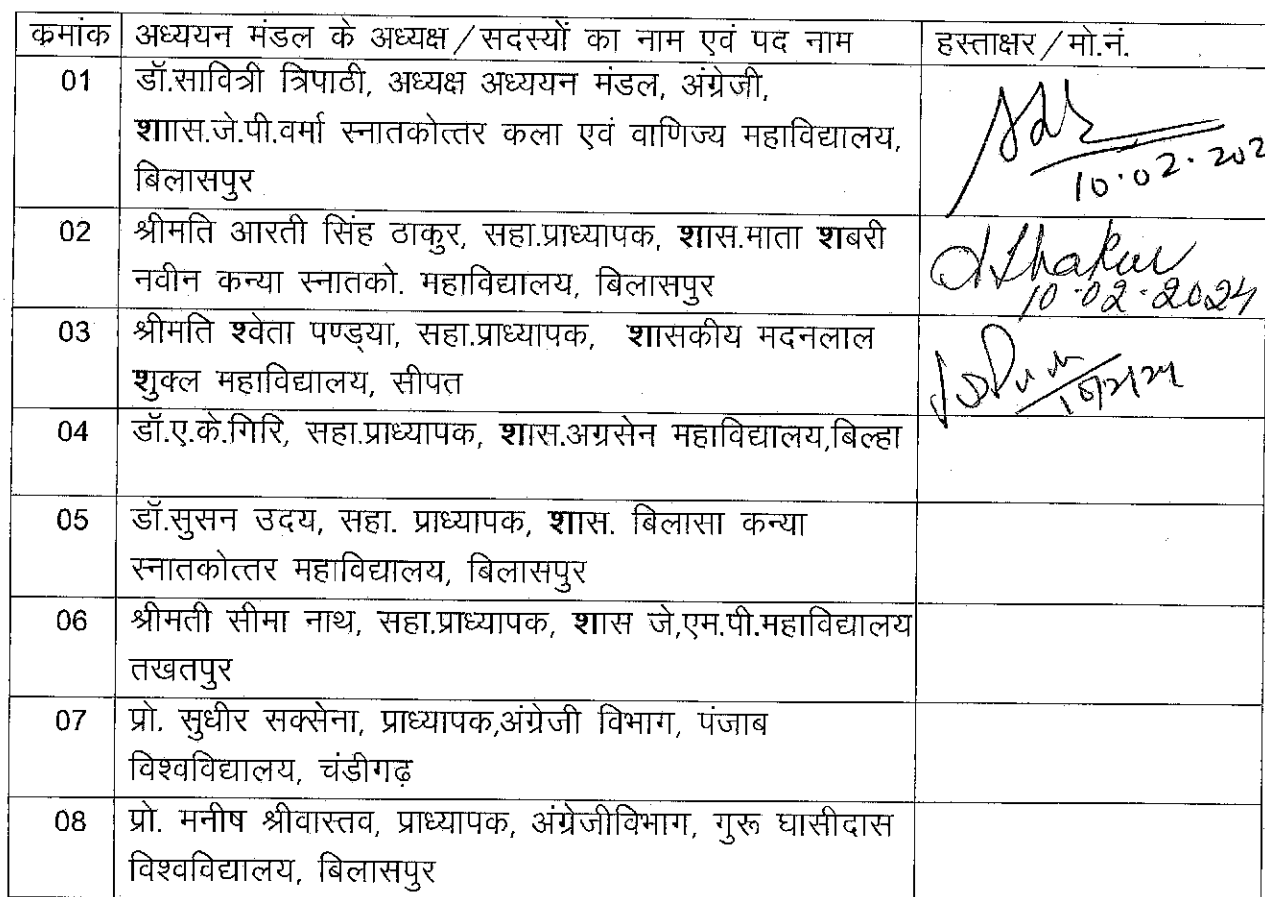 क्रमांक अध्ययन मंडल के अध्यक्ष/सदस्यों का नाम एवं पद नाम हस्ताक्षर/मो.नं.
01 डॉ.सावित्री त्रिपाठी, अध्यक्ष अध्ययन मंडल, अंग्रेजी,
शाास.जे.पी.वर्मा स्नातकोत्तर कला एवं वाणिज्य महाविद्यालय,
बिलासपुर
10.02.202
02 श्रीमति आरती सिंह ठाकुर, सहा.प्राध्यापक, शास.माता शबरी
नवीन कन्या स्नातको. महाविद्यालय, बिलासपुर
Thakur
10.02.2024
03 श्रीमति श्वेता पण्ड्या, सहा.प्राध्यापक, शासकीय मदनलाल
शुक्ल महाविद्यालय, सीपत
04 डॉ.ए.के.गिरि, सहा.प्राध्यापक, शास.अग्रसेन महाविद्यालय,बिल्हा
05 डॉ.सुसन उदय, सहा. प्राध्यापक, शास. बिलासा कन्या
स्नातकोत्तर महाविद्यालय, बिलासपुर
06 श्रीमती सीमा नाथ, सहा.प्राध्यापक, शास जे,एम.पी.महाविद्यालय
तखतपुर
07 प्रो. सुधीर सक्सेना, प्राध्यापक,अंग्रेजी विभाग, पंजाब
विश्वविद्यालय, चंडीगढ़
08 प्रो. मनीष श्रीवास्तव, प्राध्यापक, अंग्रेजीविभाग, गुरू घासीदास
विश्वविद्यालय, बिलासपुर